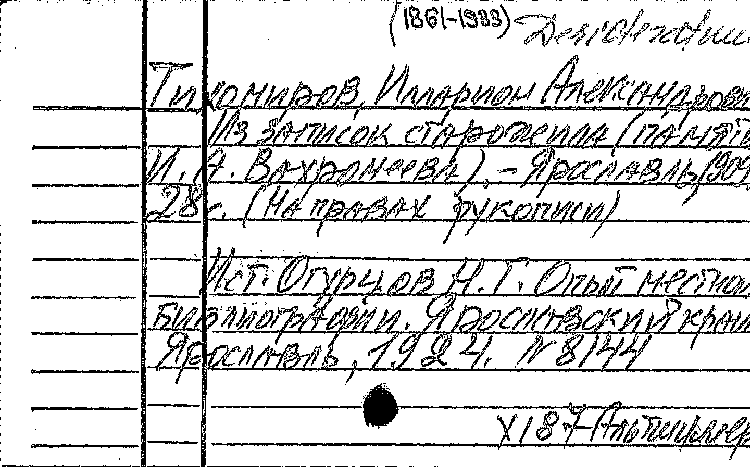 (1861-1933) Desideratum
Тихомиров, Илларион Александрови
Из записок старожила (памяти
И. А. Вахромеева). – Ярославль, 1909
28с. (На правах рукописи)
Ист. Огурцов Н. Г. Опыт местной
библиографии. Ярославский край
Ярославль, 1924. N 8144
XI 87 Альтшуллер